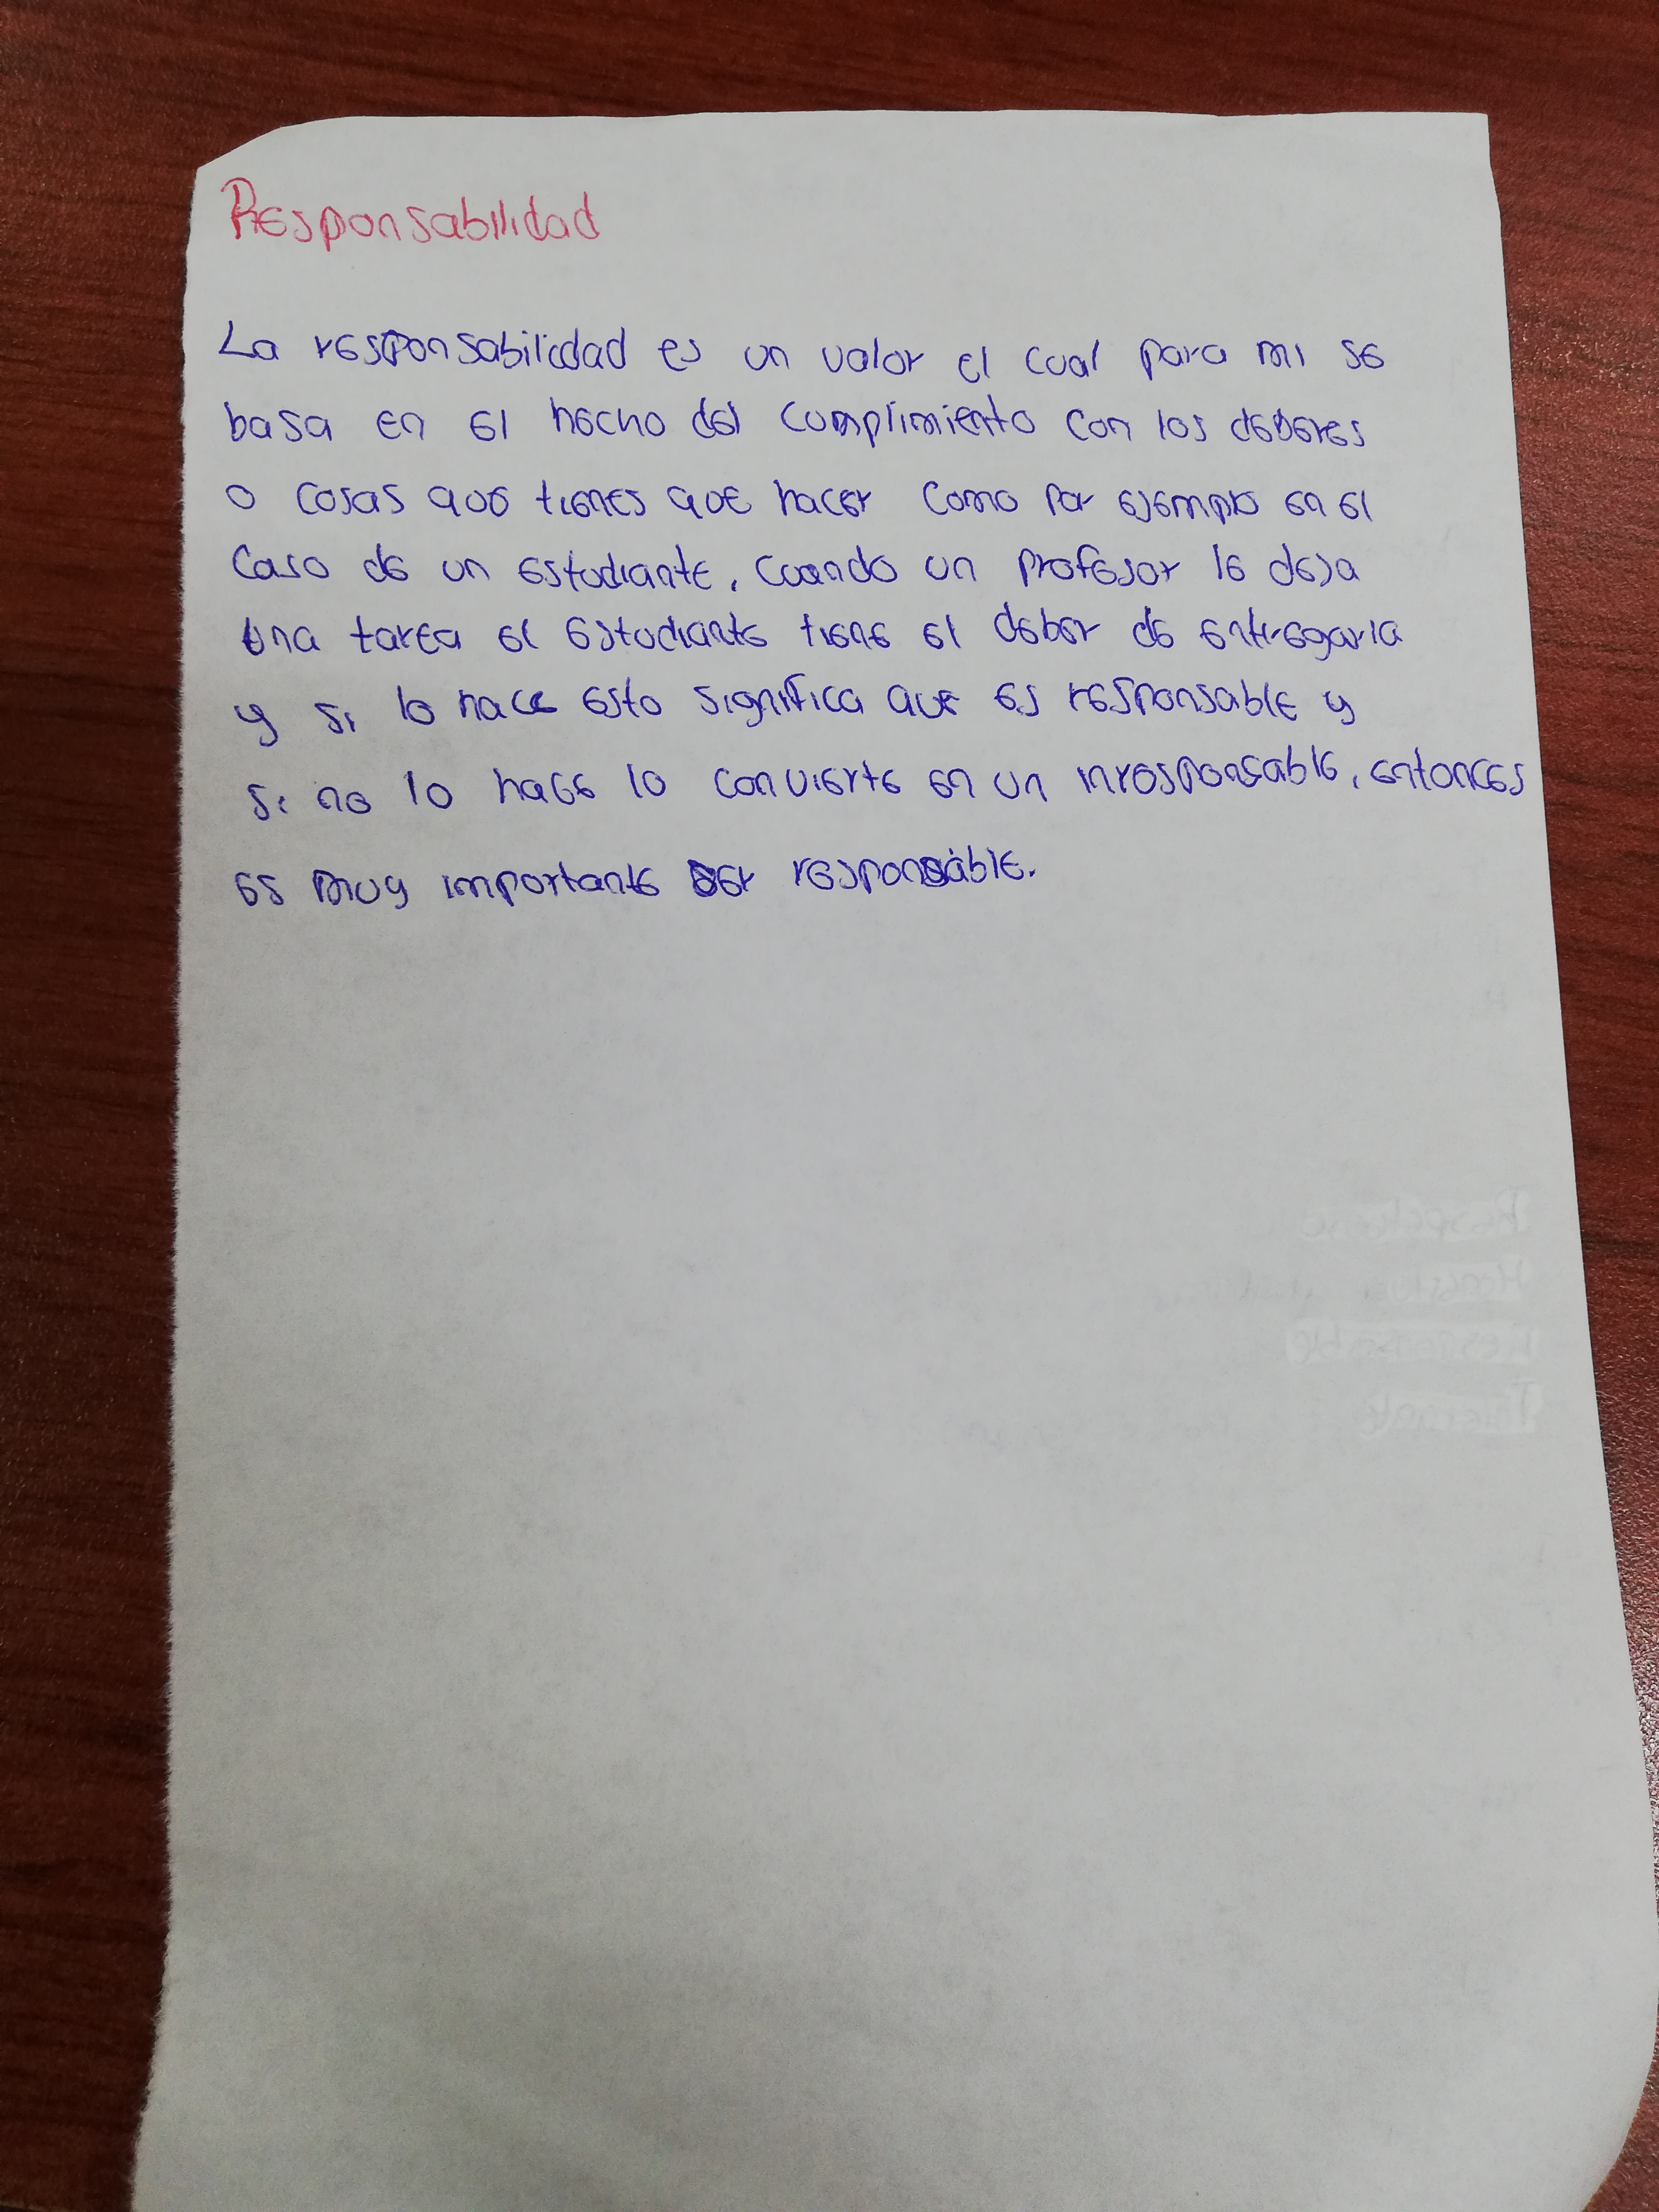 Responsabilidad
La responsabilidad es un valor el cual para mi se
basa en el hecho del cumplimiento con los deberes
o cosas que tienes que hacer como por ejemplo en el
caso de un estudiante, cuando un profesor le deja
una tarea el estudiante tiene el deber de entregarla
y si lo hace esto significa que es responsable y
si no lo hace lo convierte en un inresponsable, entonces
es muy importante ser responsable.
Respetuoso
Responsable
Tolerante